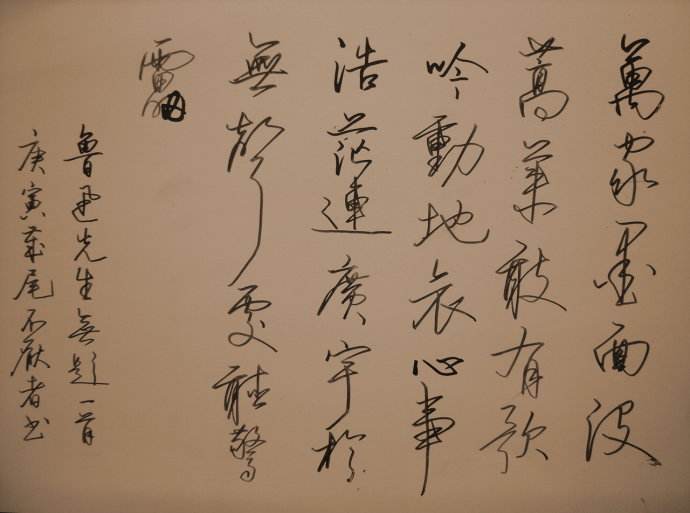 萬家墨面没
蒿萊敢有歌
吟動地哀心事
浩茫連廣宇於
無聲處聽驚
雷
魯迅先生無題一首
庚寅歲尾不厭者书